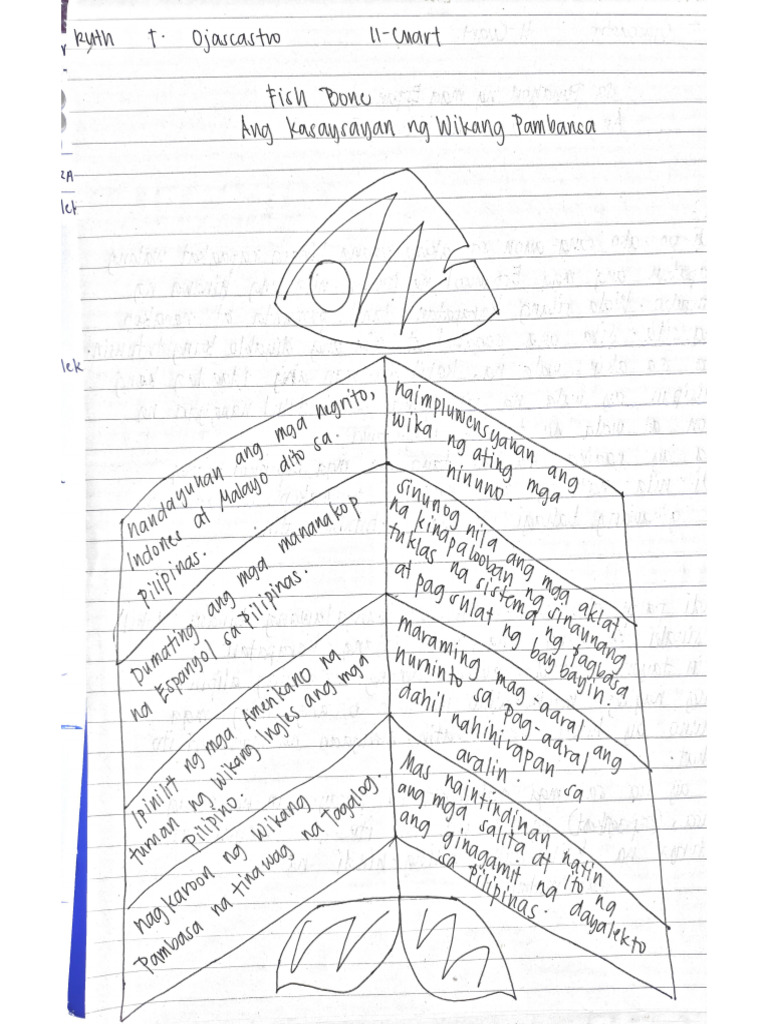 Kyth T. Ojascastro 11-Cuart
Fish Bone
Ang Kasaysayan ng Wikang Pambansa
nandayuhan ang mga negrito,
Indones at Malayo dito sa
Pilipinas.
naimpluwensyahan ang
wika ng ating mga
ninuno.
Dumating ang mga mananakop
na Espanyol sa Pilipinas.
sinunog nila ang mga aklat
na kinapalooban ng sinaunang
tuklas na sistema ng pagbasa
at pag sulat ng baybayin.
Ipinilit ng mga Amerikano na
tuman ng Wikang Ingles ang mga
Pilipino.
maraming mag-aaral ang
huminto sa pag-aaral
dahil nahihirapan sa
aralin.
nagkaroon ng Wikang
Pambasa na tinawag na Tagalog.
Mas naintindihan natin
ang mga salita at ito na
ang ginagamit na dayalekto
sa Pilipinas.
RA
lek
lek